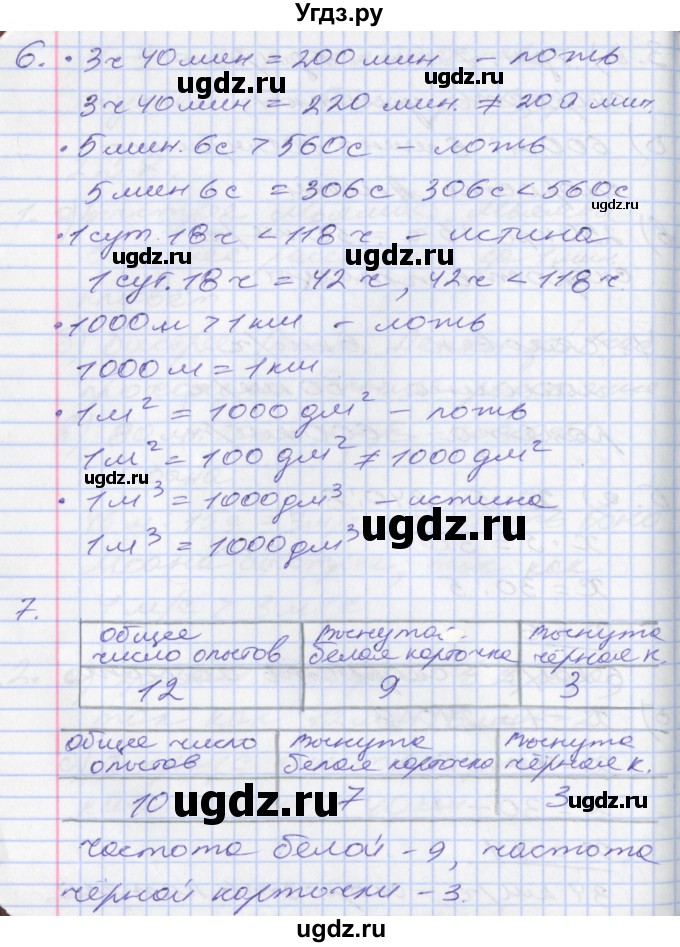 Угдз.ру
6. • 3ч 40мин = 200 мин - ложь
ugdz.ru
3ч 40мин = 220 мин. ≠ 200 мин.
• 5 мин. 6с > 560с - ложь
5 мин 6с = 306с 306с < 560с
ugdz.ru
• 1 сут. 18ч < 118 ч - истина
ugdz.ru ugdz.ru
1 сут. 18ч = 42 ч, 42ч < 118 ч.
• 1000м > 1км - ложь
1000м = 1км
• 1м² = 1000 дм² - ложь
1м² = 100 дм² ≠ 1000дм²
ugdz.ru
• 1м³ = 1000дм³ - истина
ugdz.ru
1м³ = 1000дм³
7.
Общее число опытов Вынута белая карточка Вынута чёрная к.
12 9 3
Общее число опытов Вынута белая карточка Вынута чёрная к.
10 7 3
ugdz.ru ugdz.ru
частота белой - 9, частота
чёрной карточки - 3.
ugdz.ru